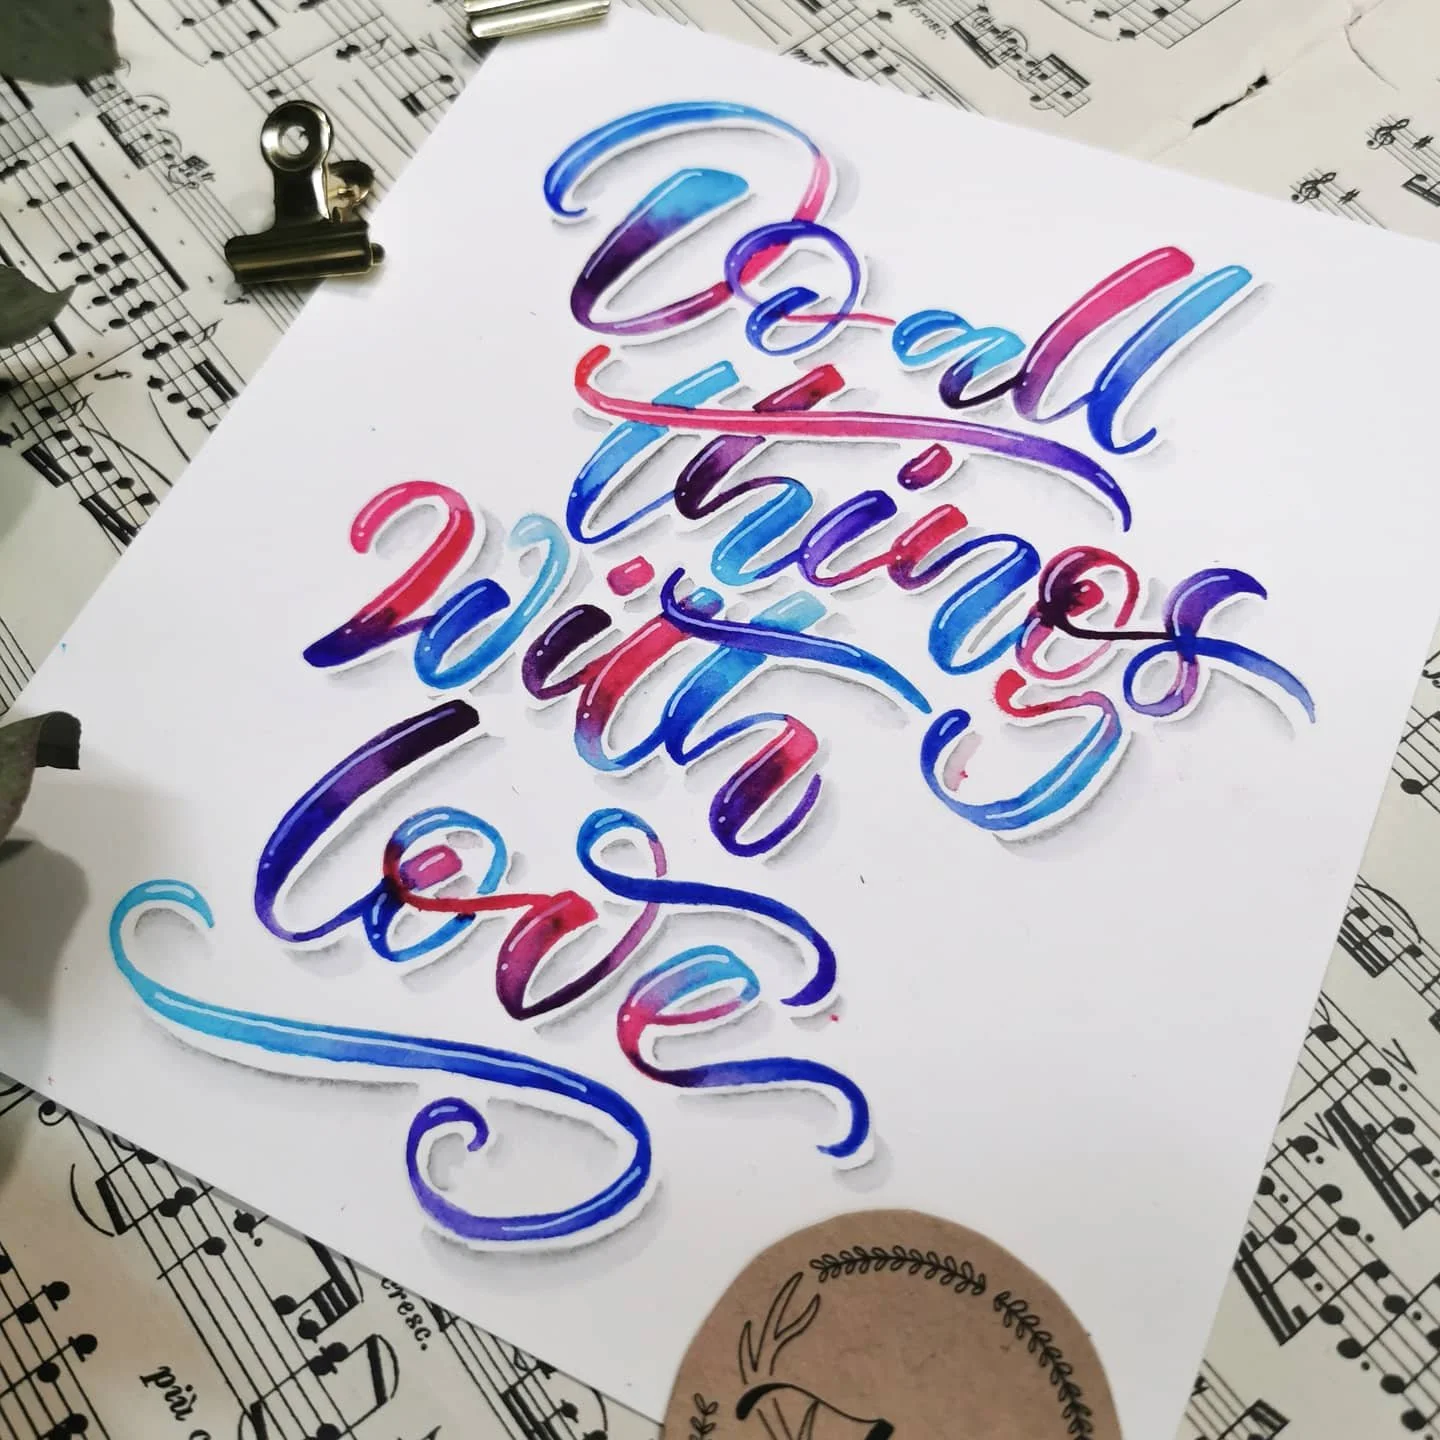 Do all
things
With
love
cresc.
più